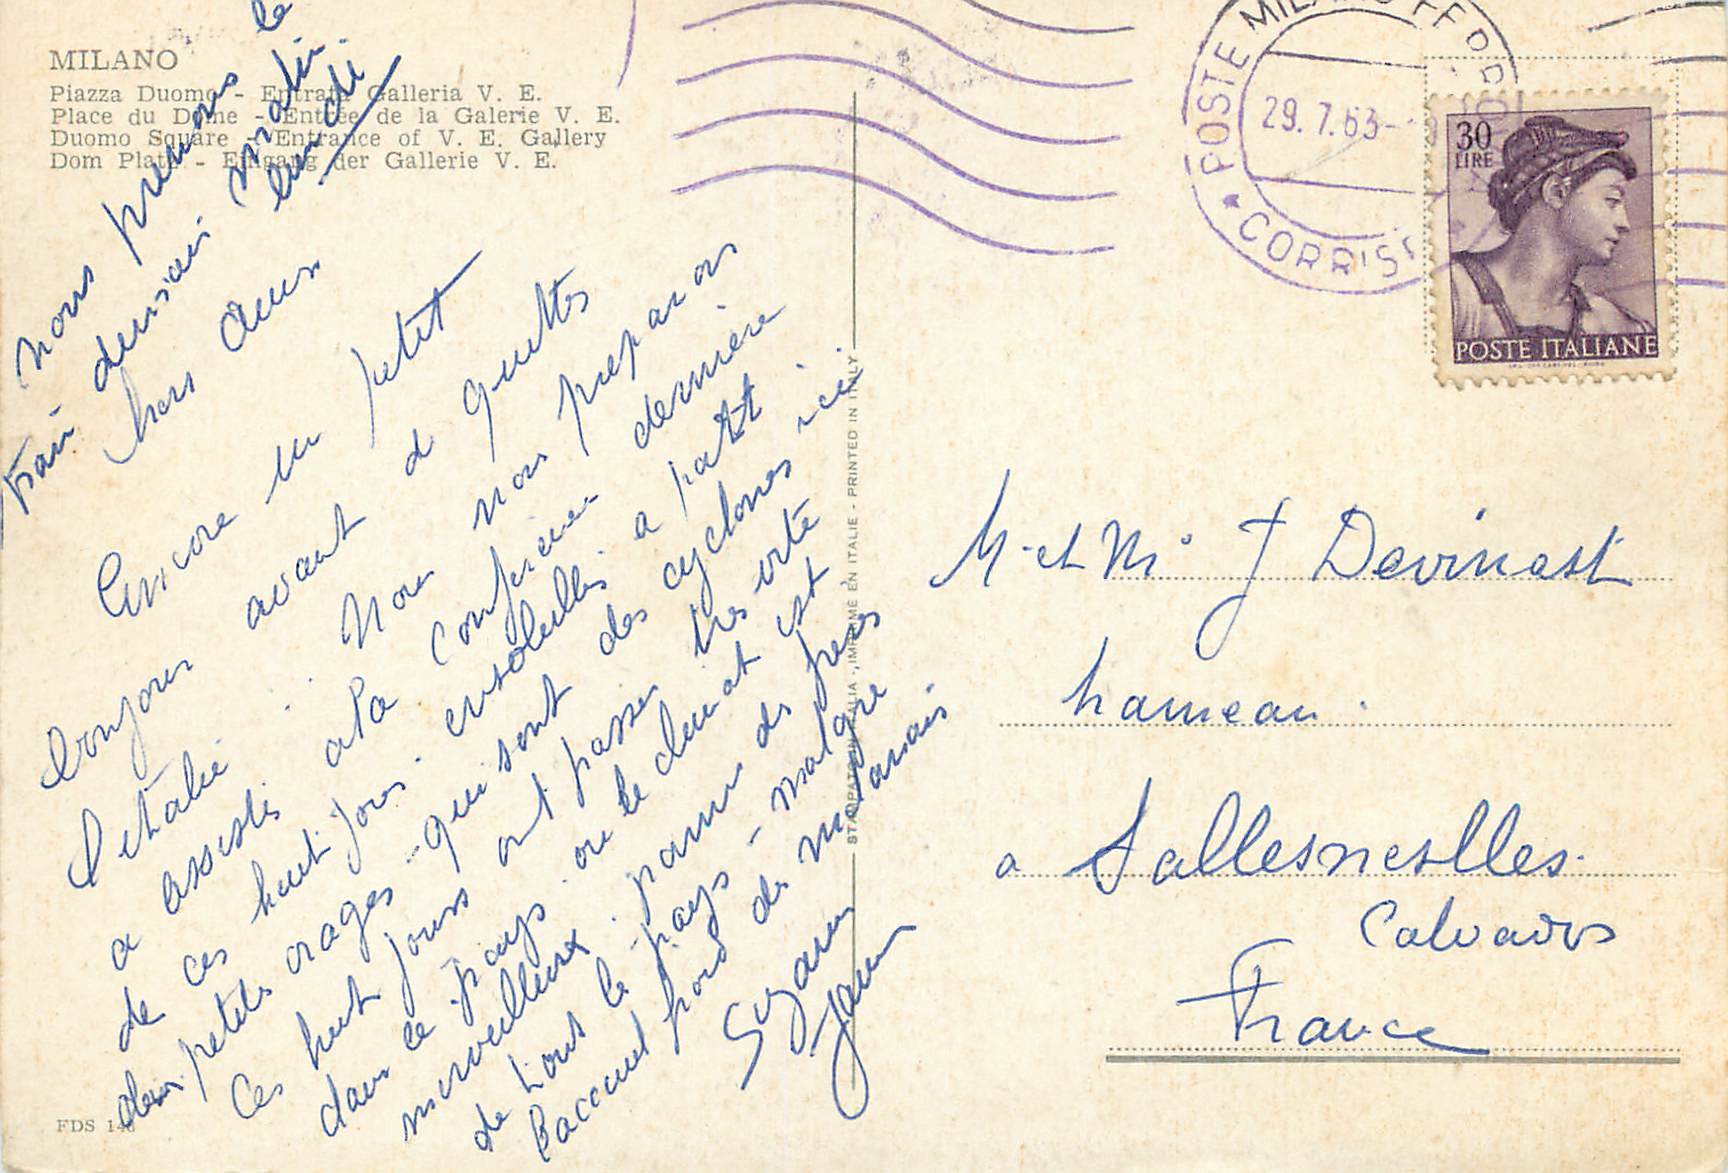 MILANO
Piazza Duomo - Entrata Galleria V. E.
Place du Dôme - Entrée de la Galerie V. E.
Duomo Square - Entrance of V. E. Gallery
Dom Platz - Eingang der Gallerie V. E.
nous prenons le
train demain matin
lundi
Encore un petit
bonjour avant d quittes
l'etalie. Nous nous preparons
a assistes a la dernière
de ces huit jours ensoleilles a part
deux petits orages qui sont des cyclones ici
Ces huit jours ont passer tres vite
dans ce pays ou le climat est
merveilleux
de tout le pays - malgre
l'accueil froid des milanais
Suzanne
FDS 146
STAMPATO IN ITALIA - IMPRIMÉ EN ITALIE - PRINTED IN ITALY
POSTE MILANO FERR
29.7.63
CORRISP
30
LIRE
POSTE ITALIANE
M. et Me J Devinast
hameau.
a Sallesneslles.
Calvados
France